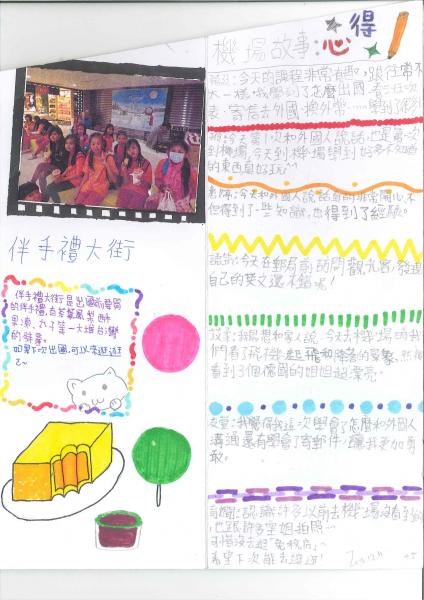 伴手禮大街
伴手禮大街是出國前要買
的伴手禮,有茶葉鳳梨酥
等一大堆台灣
的特產。
如果下次出國,可以來逛逛
機場故事:心得
今天的課程非常有趣,跟往常不
大一樣,我學到了怎麼出國、看
表、寄信去外國、換外幣……學到了
第一次和外國人說話,也是第一次
到機場,今天到機場學到好多不知道
的東西真好玩
今天和外國人說話真的非常開心,不
但得到了一些知識,也得到了經驗。
今天在郵局前訪問觀光客,發現
自己的英文還不錯呢!
我想和家人說,今天去機場的我
們看了飛機起飛和降落的景象,然後
看到3個德國的姐姐超漂亮~
我覺得我這次學會了怎麼和外國人
溝通,還有學會了寄郵件,讓我更加勇
敢。
認識許多以前去機場沒看到
也跟許多空姐拍照…
可惜沒去逛「免稅店」~
希望下次能去逛逛!